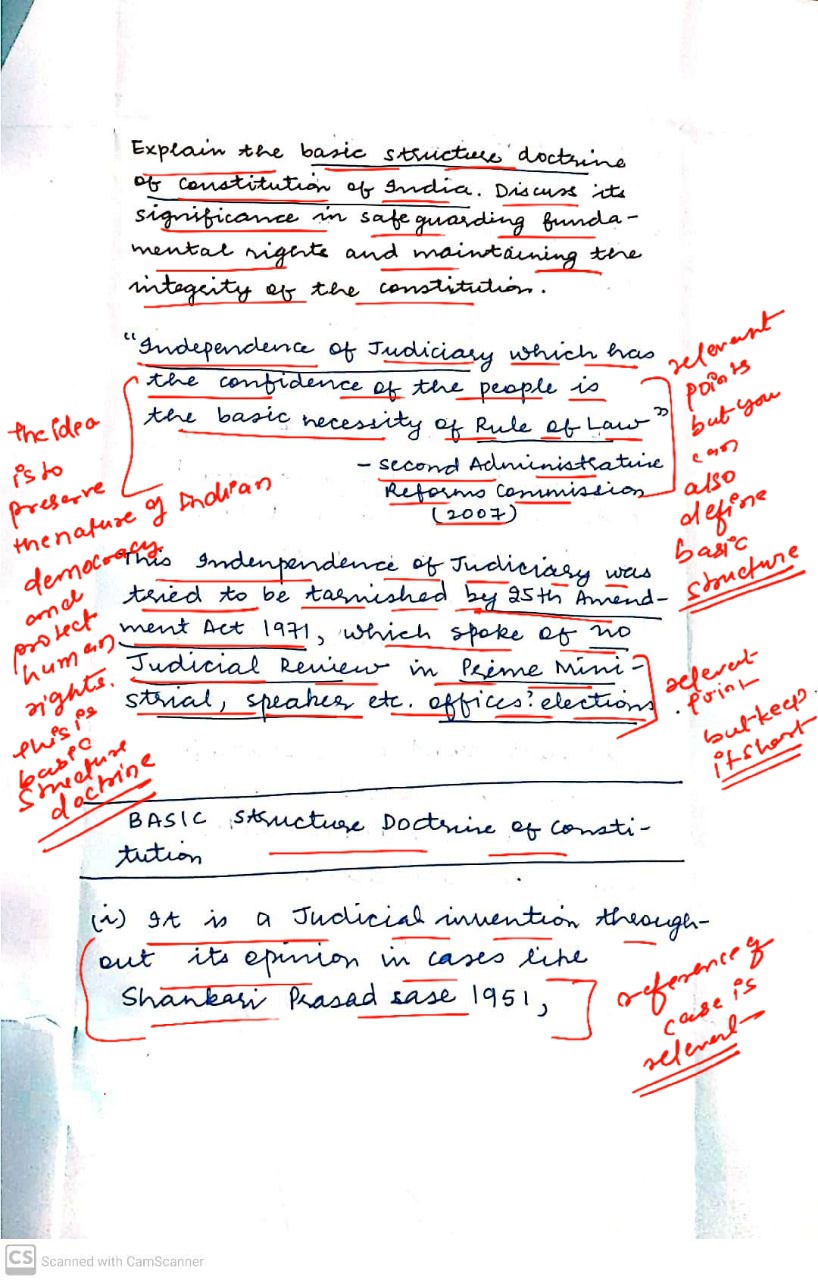 Explain the basic structure doctrine
of constitution of India. Discuss its
significance in safeguarding funda-
mental rights and maintaining the
integrity of the constitution.
"Independence of Judiciary which has
the confidence of the people is
the basic necessity of Rule of Law"
- second Administrative
Reforms Commission
(2007)
relevant
points
but you
can
also
define
basic
structure
the idea
is to
preserve
the nature of Indian
democracy
and
protect
human
rights.
this is
basic
structure
doctrine
This Indenpendence of Judiciary was
tried to be tarnished by 25th Amend-
ment Act 1971, which spoke of no
Judicial Review in Prime Mini-
strial, speaker etc. offices' elections
relevent
point
but keep
it short
BASIC structure Doctrine of consti-
tution
(i) It is a Judicial invention through-
out its opinion in cases like
Shankari Prasad sase 1951,
reference of
case is
relevent
CS Scanned with CamScanner